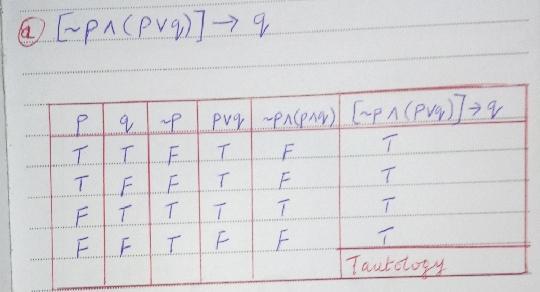 a [~p∧(p∨q)]→ q
p q ~p p∨q ~p∧(p∧q) [~p∧(p∨q)]→q
T T F T F T
T F F T F T
F T T T T T
F F T F F T
Tautology